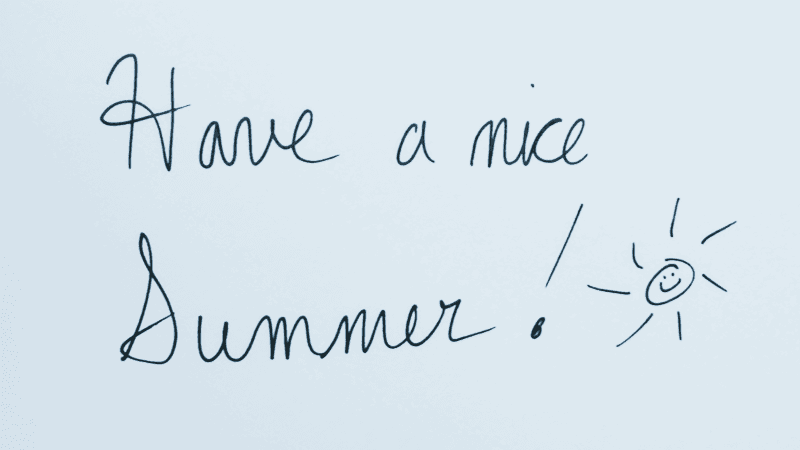 Have a nice
Summer!